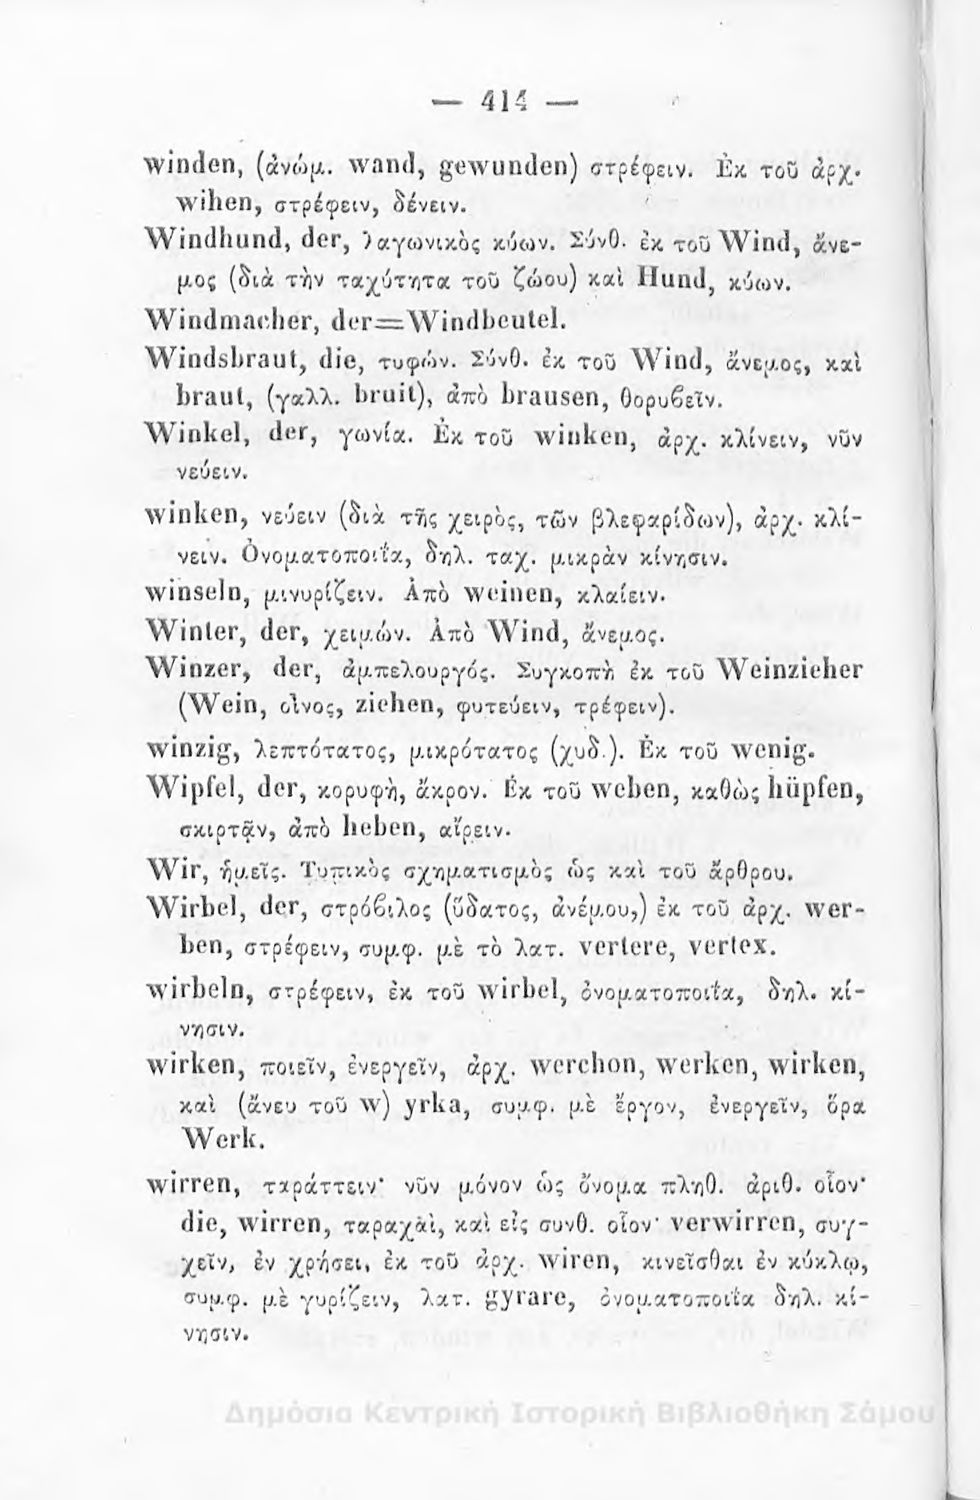 — 414 —
winden, (ἀνώμ. wand, gewunden) στρέφειν. Ἐκ τοῦ ἀρχ.
wihen, στρέφειν, δένειν.
Windhund, der, λαγωνικὸς κύων. Σύνθ. ἐκ τοῦ Wind, ἄνε-
μος (διὰ τὴν ταχύτητα τοῦ ζώου) καὶ Hund, κύων.
Windmacher, der=Windbeutel.
Windsbraut, die, τυφών. Σύνθ. ἐκ τοῦ Wind, ἄνεμος, καὶ
braut, (γαλλ. bruit), ἀπὸ brausen, θορυβεῖν.
Winkel, der, γωνία. Ἐκ τοῦ winken, ἀρχ. κλίνειν, νῦν
νεύειν.
winken, νεύειν (διὰ τῆς χειρὸς, τῶν βλεφαρίδων), ἀρχ. κλί-
νειν. Ὀνοματοποιΐα, δηλ. ταχ. μικρὰν κίνησιν.
winseln, μινυρίζειν. Ἀπὸ weinen, κλαίειν.
Winter, der, χειμών. Ἀπὸ Wind, ἄνεμος.
Winzer, der, ἀμπελουργός. Συγκοπὴ ἐκ τοῦ Weinzieher
(Wein, οἶνος, ziehen, φυτεύειν, τρέφειν).
winzig, λεπτότατος, μικρότατος (χυδ.). Ἐκ τοῦ wenig.
Wipfel, der, κορυφὴ, ἄκρον. Ἐκ τοῦ weben, καθὼς hüpfen,
σκιρτᾷν, ἀπὸ heben, αἴρειν.
Wir, ἡμεῖς. Τυπικὸς σχηματισμὸς ὡς καὶ τοῦ ἄρθρου.
Wirbel, der, στρόβιλος (ὕδατος, ἀνέμου,) ἐκ τοῦ ἀρχ. wer-
ben, στρέφειν, συμφ. μὲ τὸ λατ. vertere, vertex.
wirbeln, στρέφειν, ἐκ τοῦ wirbel, ὀνοματοποιΐα, δηλ. κί-
νησιν.
wirken, ποιεῖν, ἐνεργεῖν, ἀρχ. werchon, werken, wirken,
καὶ (ἄνευ τοῦ w) yrka, συμφ. μὲ ἔργον, ἐνεργεῖν, ὅρα
Werk.
wirren, ταράττειν· νῦν μόνον ὡς ὄνομα πληθ. ἀριθ. οἷον·
die, wirren, ταραχαὶ, καὶ εἰς συνθ. οἷον· verwirren, συγ-
χεῖν, ἐν χρήσει, ἐκ τοῦ ἀρχ. wiren, κινεῖσθαι ἐν κύκλῳ,
συμφ. μὲ γυρίζειν, λατ. gyrare, ὀνοματοποιΐα δηλ. κί-
νησιν.
Δημόσια Κεντρική Ιστορική Βιβλιοθήκη Σάμου